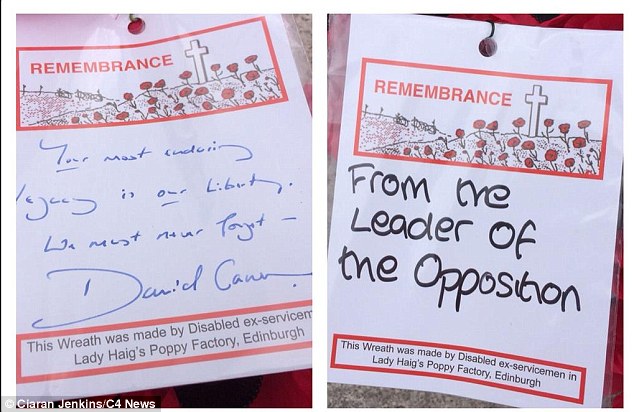 REMEMBRANCE
Your most enduring
legacy is our liberty.
We must never forget —
David Cameron
This Wreath was made by Disabled ex-servicem
Lady Haig's Poppy Factory, Edinburgh
© Ciaran Jenkins/C4 News
REMEMBRANCE
From the
Leader of
the Opposition
This Wreath was made by Disabled ex-servicemen in
Lady Haig's Poppy Factory, Edinburgh